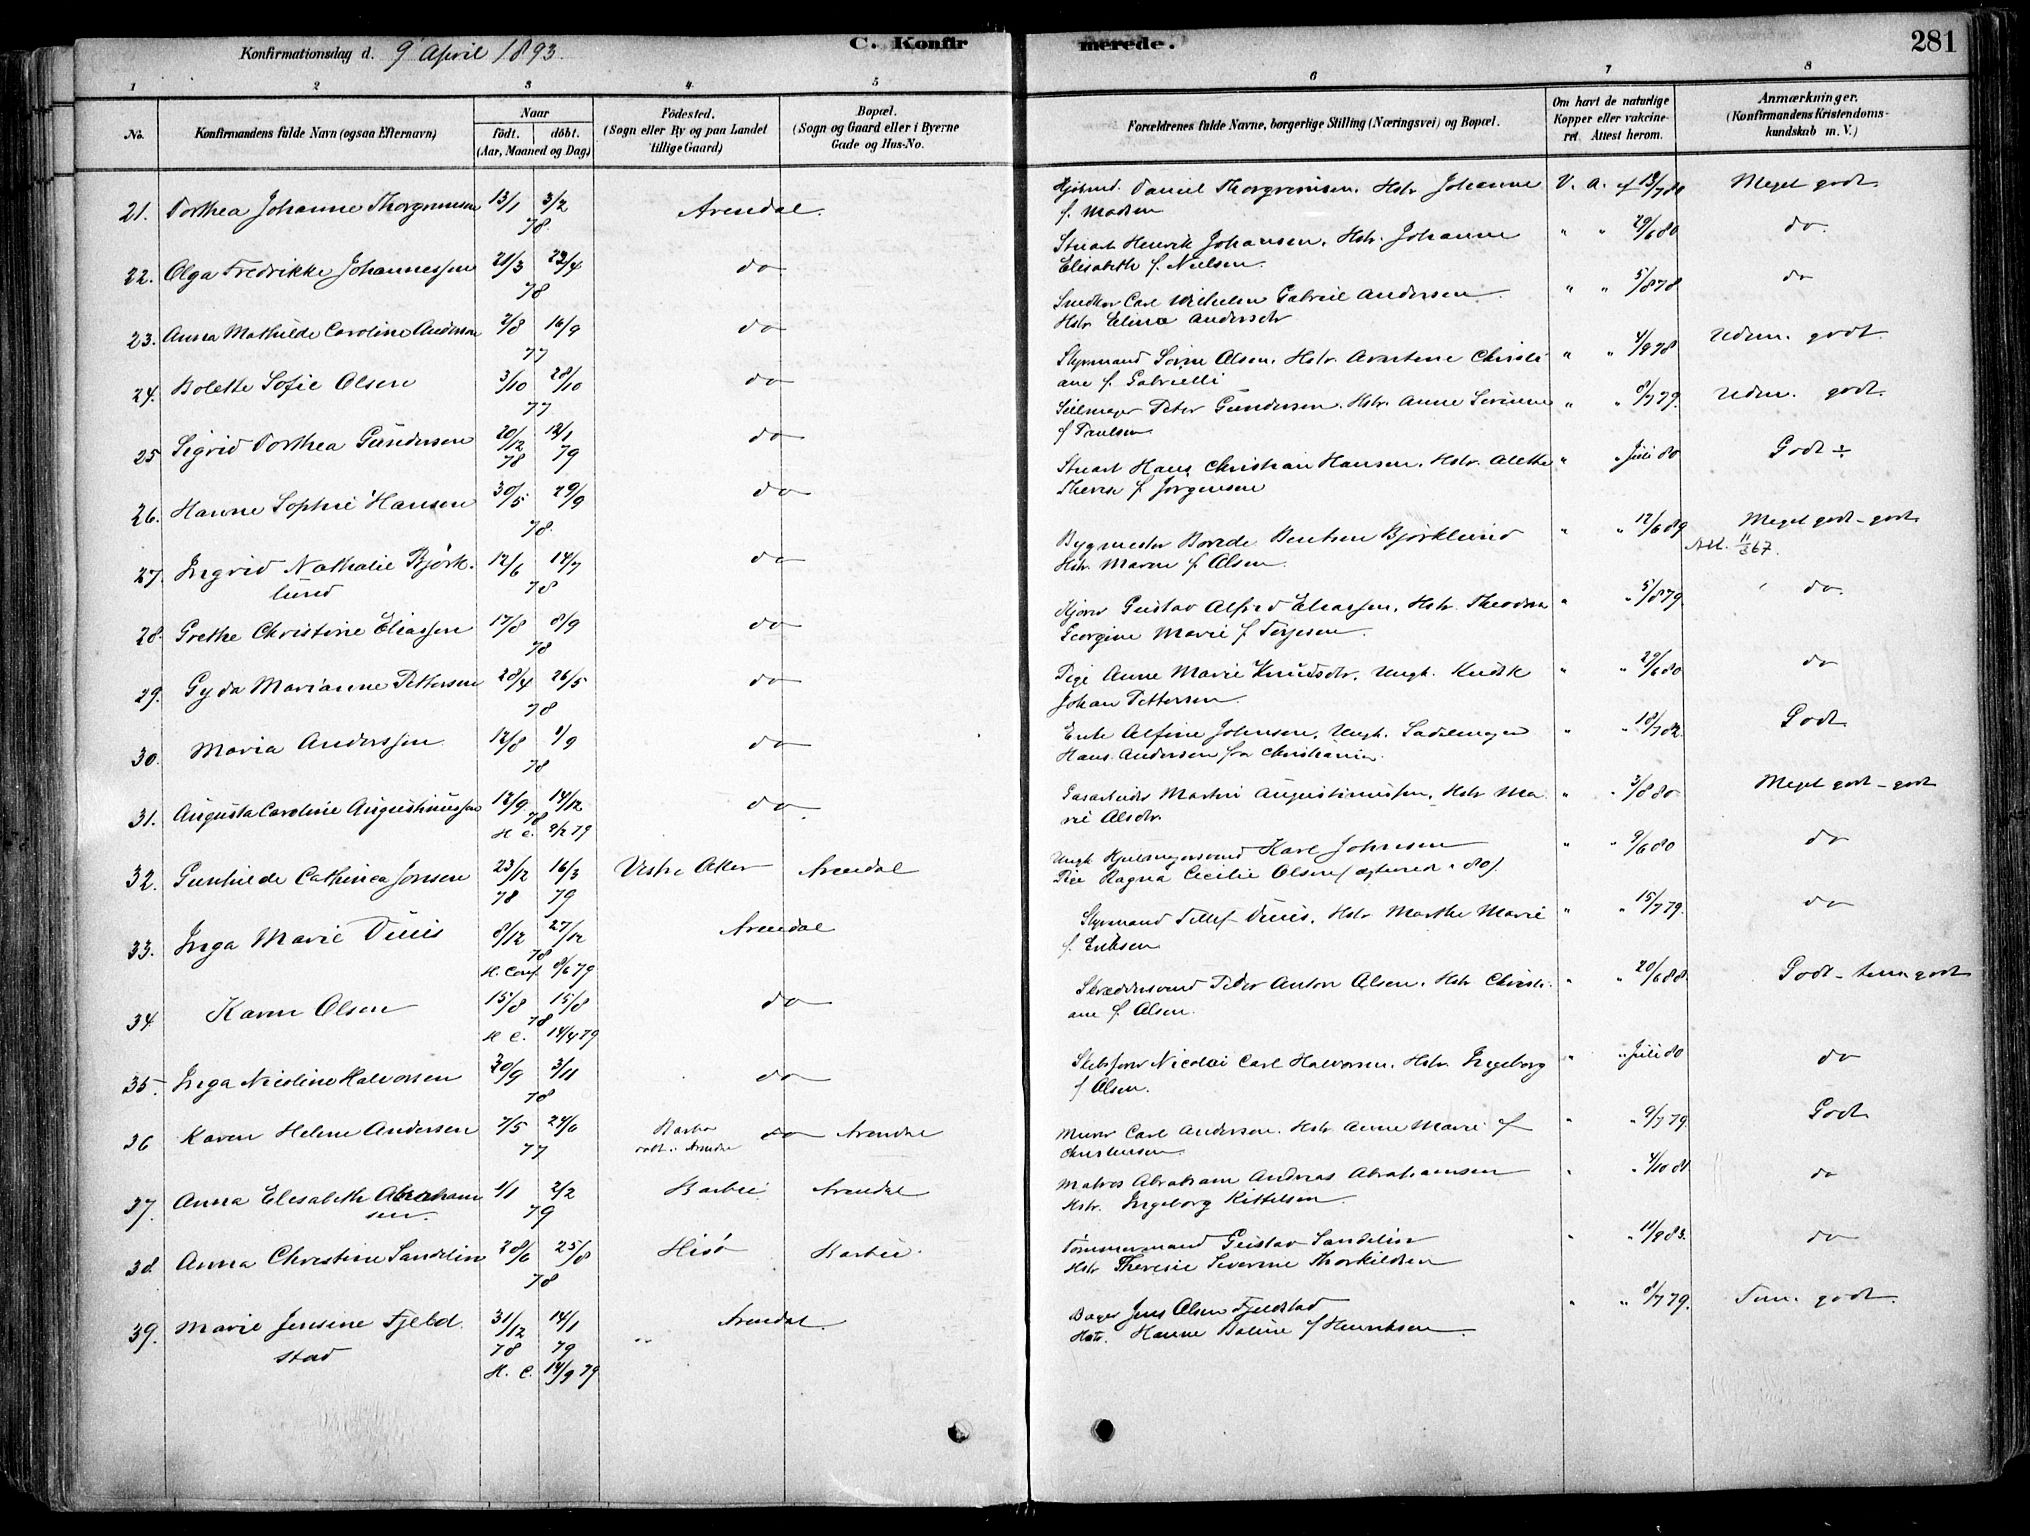 Konfirmationsdag d. 9' April 1893.
C. Konfirmerede.
281
1 2 3 4 5 6 7 8
No.
Konfirmandens fulde Navn (ogsaa Efternavn)
Naar
födt. döbt.
(Aar, Maaned og Dag)
Födested.
(Sogn eller By og paa Landet
tillige Gaard)
Bopæl.
(Sogn og Gaard eller i Byerne
Gade og Hus-No.
Forældrenes fulde Navne, borgerlige Stilling (Næringsvei) og Bopæl.
Om havt de naturlige
Kopper eller vakcine-
ret. Attest herom.
Anmærkninger.
(Konfirmandens Kristendoms-
kundskab m. V.)
21. Dorthea Johanne Thorgrimsen 13/1 3/2 78 Arendal. Daniel Thorgrimsen. Hstr Johanne V. A. Meget godt
f. Madsen
22. Olga Fredrikke Johannessen 21/3 22/4 78 do Stuart Henrik Johansen. Hstr. Johanne " " 29/6 80 do.
Elisabeth f. Nielsen.
23. Anna Mathilde Caroline Andersen 2/8 16/9 77 do Snedker Carl Wilhelm Gabriel Andersen " " 5/8 78 do
Hstr. Elina Andersdr
24. Bolette Sofie Olsen 3/10 28/10 77 do Styrmand Olsen. Hstr. Christi- " " 4/9 78 Udm. godt.
ane f. Gabrielli
25 Sigrid Dorthea Gundersen 20/12 78 12/1 79 do Seilmager Peter Gundersen. Hstr. Anne " " 8/7 79. Udm. godt.
f Paulsen
26. Hanne Sophie Hansen 30/5 29/9 78. do Stuart Hans Christian Hansen. Hstr. Alethe " " Juli 80 Godt ÷
Therese f. Jørgensen
27. Ingrid Nathalie Björk- 12/6 14/7 78 do Bygmester Bentsen Björklund " " 12/6 89 Meget godt - godt
lund Hstr. Maren f. Olsen. Att. 11/367.
28. Grethe Christine Eliassen 17/8 8/9 78 do Gustav Alfred Eliassen. Hstr. Theodora " " 5/8 79. do.
Georgine Marie f Terjesen.
29. Gyda Marianne Pettersen 28/4 26/5 78 do Pige Anne Marie Knudsdr. Ungk. Kudsk " " 29/6 80 do
Johan Pettersen.
30. Maria Anderssen 12/8 1/9 78 do Enke Alfine Johnsen. Ungk. Sadelmager " " 18/7 82. Godt
Hans Andersen fra Christiania.
31. Augusta Caroline Augustinussen 12/9 14/12 78 do. Martin Augustinussen. Hstr Ma- " " 3/8 80 Meget godt - godt
H C. 9/2 79 rie Olsdr.
32. Gunhilde Cathinca Jonsen 23/12 78 16/3 79 Vestre Aker Arendal Ungk Karl Johnsen " " 9/6 80 do
Pige Ragna Cecilie Olsen
33. Inga Marie Duus 8/12 27/12 78 Arendal Styrmand Tellef Duus. Hstr Marthe Marie " " 15/7 79. do
H. Conf. 8/6 79 f. Eriksen
34 Karen Olsen 15/8 15/8 78 do Peder Anton Olsen. Hstr Christi- " " 20/6 88. Godt - tem godt
H C. 14/4 79 ane f. Olsen.
35. Inga Nicoline Halvorsen 30/9 3/11 78 do Nicolai Carl Halvorsen. Hstr. Ingeborg " " Juli 80 do
f Olsen.
36 Karen Helene Andersen 7/5 24/6 77 Barbo do Arendal Murer Carl Andersen. Hstr Anne Marie f " " 9/7 79. Godt
Christensen
37. Anna Elisabeth Abraham 1/1 2/2 79 Barbu Arendal Matros Abraham Andreas Abrahamsen " " 4/10 81 do
sen. Hstr. Ingeborg Kittelsen.
38. Anna Christine Sandelin 28/6 25/8 78 Hisö Barbu. Tømmermand Gustav Sandelin " " 11/9 83. do
Hstr Theresie Severine Thorkildsen
39. Marie Jensine Fjeld 31/12 78 14/1 79 " Arendal. Bager Jens Olsen Fjeldstad " " 8/7 79. Tem. godt.
stad H. C. 14/9 79 Hstr. Hanne f Henriksen.